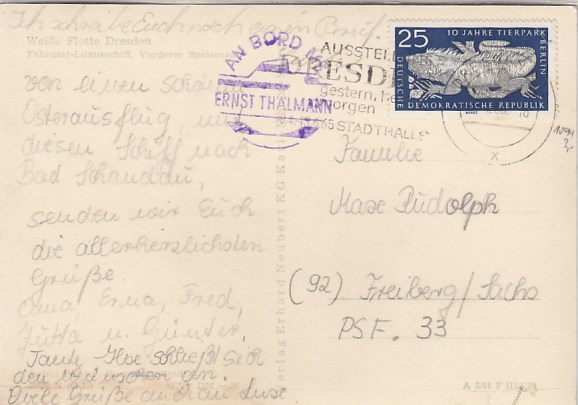 Ich schreibe Euch noch einen Brief
Weiße Flotte Dresden
Fahrgast-Luxusschiff, Vorderer Speisesaal
von einen schönen
Osterausflug mit
diesen Schiff nach
Bad Schandau,
senden wir Euch
die allerherzlichsten
Grüße.
Oma Erna, Fred,
Jutta u. Günter.
Tante Ilse schließt sich
den Wünschen an.
Viele Grüße auch an
AN BORD
ERNST THÄLMANN
AUSSTELLUNG
DRESDEN
gestern, 
morgen
STADTHALLE
25
10 JAHRE TIERPARK BERLIN
DEUTSCHE
DEMOKRATISCHE REPUBLIK
Verlag Erhard Neubert KG
Familie
Max Rudolph
(92) Freiberg/Sachs
PSF. 33